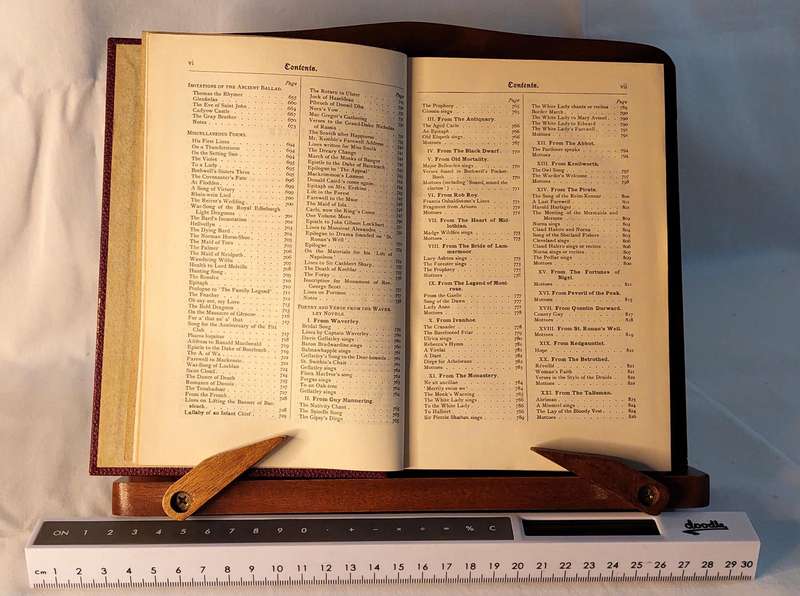 vi
Contents.
Page
IMITATIONS OF THE ANCIENT BALLAD.
Thomas the Rhymer
Glenfinlas 657
The Eve of Saint John 660
Cadyow Castle 664
The Gray Brother 667
Notes 670
673
MISCELLANEOUS POEMS.
His First Lines 694
On a Thunderstorm 694
On the Setting Sun 694
The Violet
To a Lady
Bothwell's Sisters Three
The Covenanter's Fate
At Flodden
A Song of Victory
Rhein-wein Lied
The Reiver's Wedding
War-Song of the Royal Edinburgh
Light Dragoons
The Bard's Incantation
Hellvellyn
The Dying Bard
The Norman Horse-Shoe
The Maid of Toro
The Palmer
The Maid of Neidpath
Wandering Willie
Health to Lord Melville
Hunting Song
The Resolve
Epitaph
Prologue to 'The Family Legend'
The Poacher
Oh say not, my Love
The Bold Dragoon
On the Massacre of Glencoe
For a' that an' a' that
Song for the Anniversary of the Pitt
Club
Pharos loquitur
Address to Ranald Macdonald
Epistle to the Duke of Buccleuch
Farewell to Mackenzie
War-Song of Lachlan
Saint Cloud
The Dance of Death
Romance of Dunois
The Troubadour
From the French
Lines on Lifting the Banner of Buc-
cleuch
Lullaby of an Infant Chief
Page
The Return to Ulster
Jock of Hazeldean
Pibroch of Donuil Dhu
Nora's Vow
Mac Gregor's Gathering
Verses to the Grand-Duke Nicholas
of Russia
The Search after Happiness
Mr. Kemble's Farewell Address
Lines written for Miss Smith
The Dreary Change
March of the Monks of Bangor
Epistle to the Duke of Buccleuch
Epilogue to 'The Appeal'
Mackrimmon's Lament
Donald Caird's come again
Epitaph on Mrs. Erskine
Life in the Forest
Farewell to the Muse
The Maid of Isla
Carle, now the King's Come
One Volume More
Epistle to John Gibson Lockhart
Lines to Monsieur Alexandre
Epilogue to Drama founded on 'St.
Ronan's Well'
Epilogue
On the Materials for his 'Life of
Napoleon'
Lines to Sir Cuthbert Sharp
The Death of Keeldar
The Foray
Inscription for Monument of Rev.
George Scott
Lines on Fortune
Notes
POETRY AND VERSE FROM THE WAVER-
LEY NOVELS
I. From Waverley
Bridal Song
Lines by Captain Waverley
Davie Gellatley sings
Baron Bradwardine sings
Balmawhapple sings
Gellatley's Song to the Deer-hounds
St. Swithin's Chair
Gellatley sings
Flora MacIvor's song
Fergus sings
To an Oak tree
Gellatley sings
Gellatley sings
II. From Guy Mannering
The Nativity Chant
The Spindle Song
The Gipsy's Dirge
Contents.
vii
Page
The Prophecy 765
Glossin sings 765
III. From The Antiquary.
The Aged Carle 766
An Epitaph 766
Old Elspeth sings 766
Mottoes 767
IV. From The Black Dwarf. 770
V. From Old Mortality.
Major Bellenden sings 770
Verses found in Bothwell's Pocket-
Book 770
Mottoes (including 'Sound, sound the
clarion') 771
VI. From Rob Roy.
Francis Osbaldistone's Lines 771
Fragment from Ariosto 771
Mottoes 771
VII. From The Heart of Mid-
lothian.
Madge Wildfire sings 773
Mottoes 775
VIII. From The Bride of Lam-
mermoor
Lucy Ashton sings 775
The Forester sings 775
The Prophecy 775
Mottoes
IX. From The Legend of Mont-
rose.
From the Gaelic 777
Song of the Dawn 777
Lady Anne 777
Mottoes 778
X. From Ivanhoe.
The Crusader 778
The Barefooted Friar 779
Ulrica sings 780
Rebecca's Hymn 781
A Virelai 781
A Duet 782
Dirge for Athelstane 782
Mottoes 782
XI. From The Monastery.
Ne sit ancillae 784
'Merrily swim we' 784
The Monk's Warning 785
The White Lady sings 786
To the White Lady 786
To Halbert 786
Sir Piercie Shafton sings 789
Page
The White Lady chants or recites 789
Border March 790
The White Lady to Mary Avenel 790
The White Lady to Edward 790
The White Lady's Farewell 791
Mottoes 791
XII. From The Abbot.
The Pardoner speaks 794
Mottoes 794
XIII. From Kenilworth.
The Owl Song 797
The Warder's Welcome 797
Mottoes 798
XIV. From The Pirate.
The Song of the Reim-Kennar
A Last Farewell
Harold Harfager
The Meeting of the Mermaids and
Mermen
Norna sings
Claud Halcro and Norna
Song of the Shetland Fishers
Cleveland sings
Claud Halcro sings or recites
Norna sings or recites
The Pedlar sings
Mottoes
XV. From The Fortunes of
Nigel.
Mottoes 811
XVI. From Peveril of the Peak. 815
XVII. From Quentin Durward.
County Guy 817
Mottoes 818
XVIII. From St. Ronan's Well. 819
XIX. From Redgauntlet.
Hope 821
XX. From The Betrothed.
Réveillé 821
Woman's Faith 821
Verses in the Style of the Druids 822
Mottoes 822
XXI. From The Talisman.
Ahriman 823
A Minstrel sings 824
The Lay of the Bloody Vest 824
Mottoes 826
ON 1 2 3 4 5 6 7 8 9 0 · + − × ÷ = % C
doodle
Cm 1 2 3 4 5 6 7 8 9 10 11 12 13 14 15 16 17 18 19 20 21 22 23 24 25 26 27 28 29 30